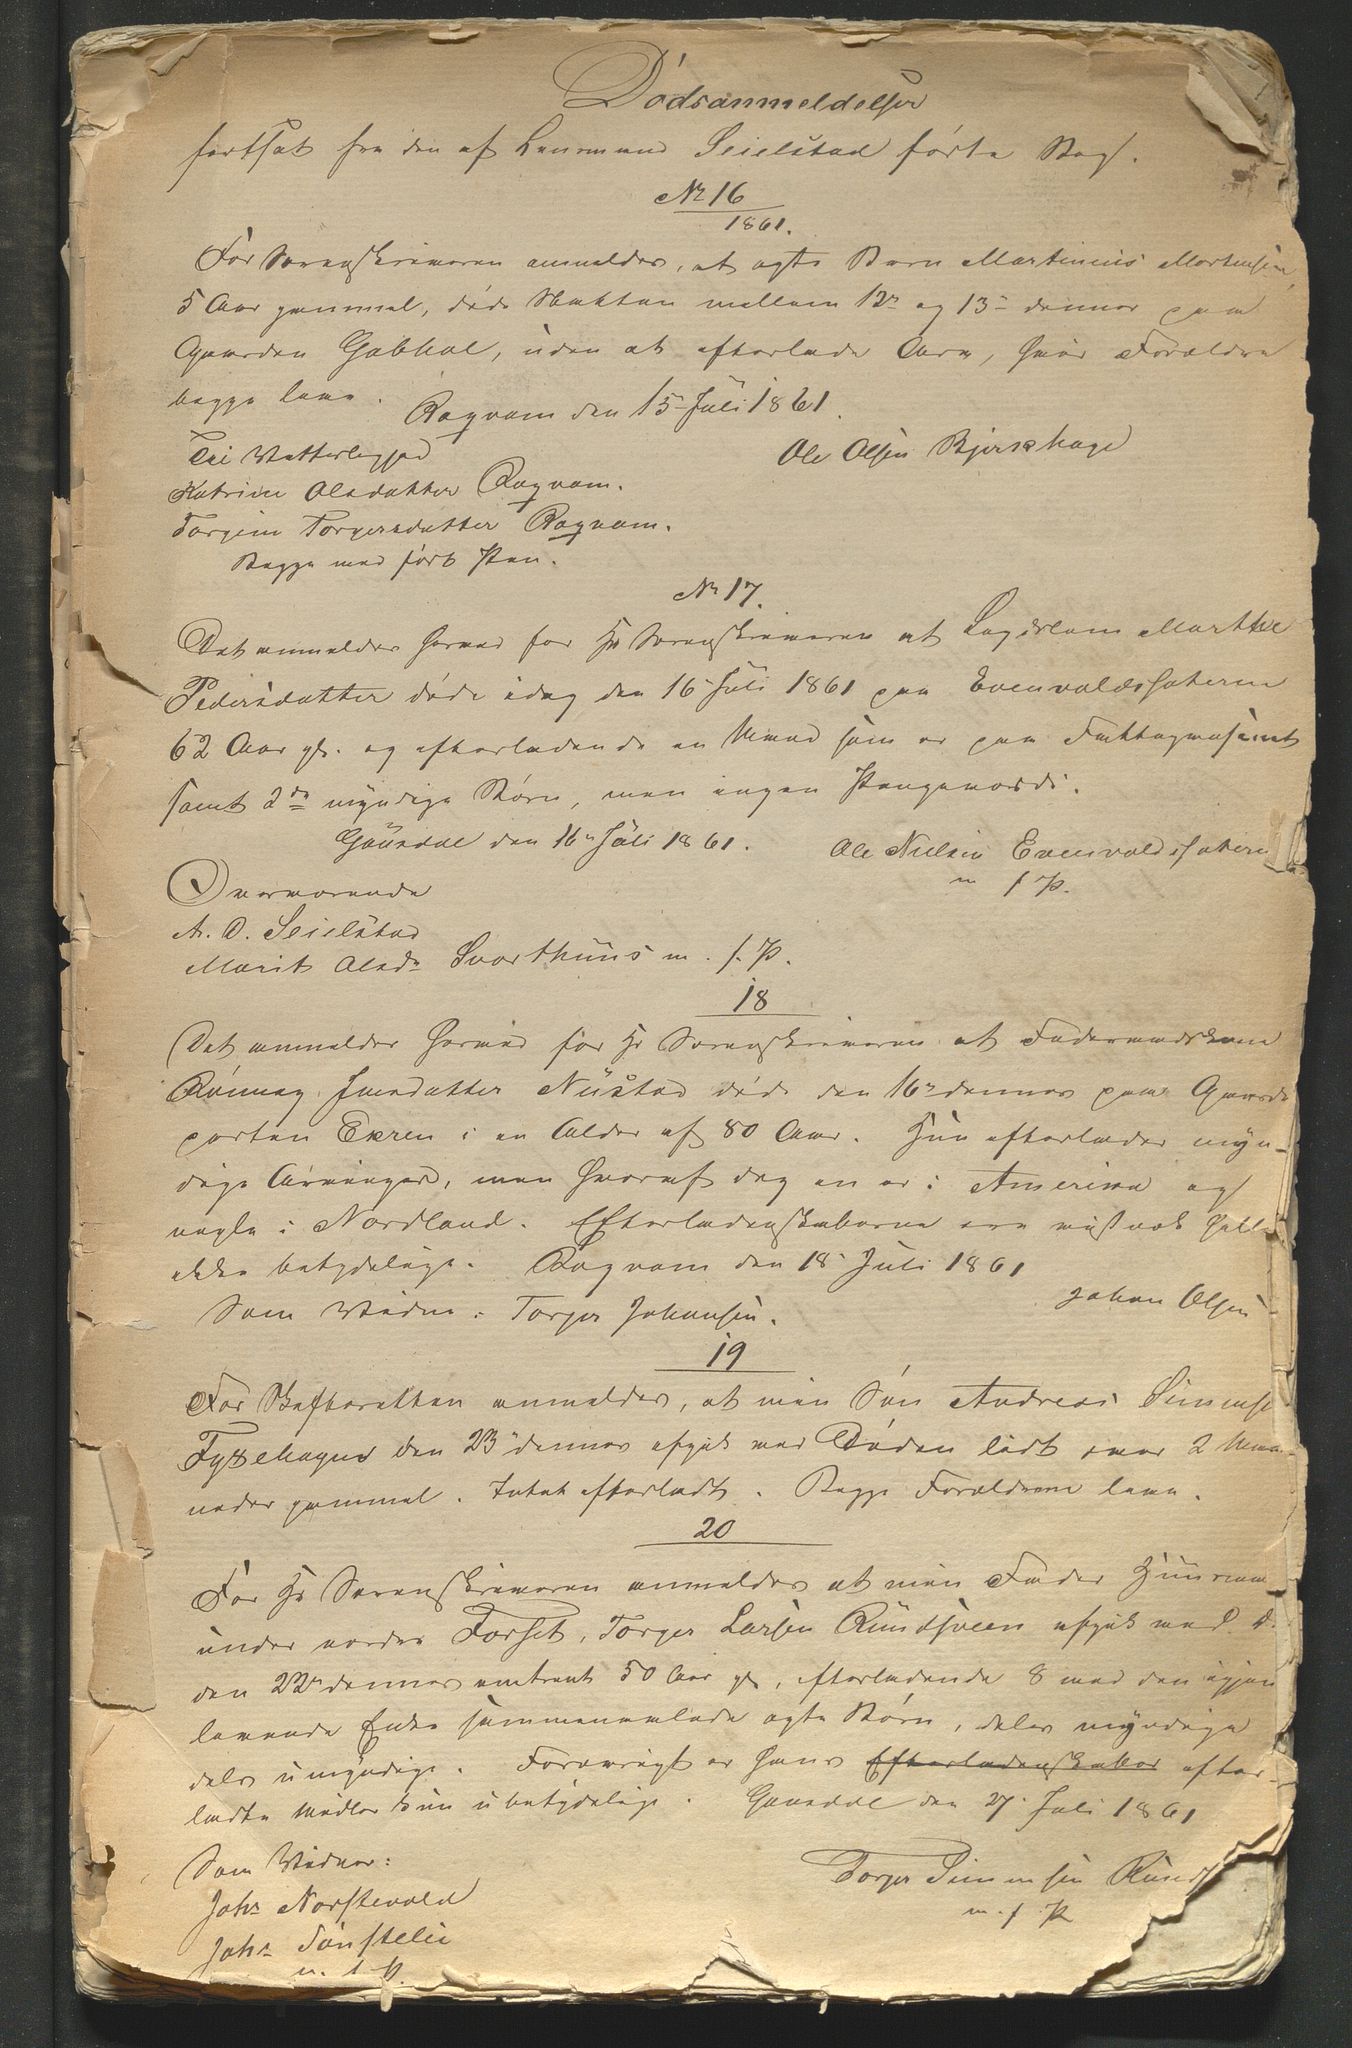 Dødsanmeldelser
fortsat fra den af Lensmand Seielstad førte Bog.
No 16
1861.
For Sorenskriveren anmeldes, at ægte Barn Martinius Mortensen
5 Aar gammel, døde Natten mellem 12te og 13de dennes paa
Gaarden Gobhol, uden at efterlade Arv, hvis Forældre
begge leve.
Rogvam den 15 Juli 1861.
Til Vitterlighed
Ole Olsen Bjerkhage
Katrine Olsdatter Rogvam.
Torgine Torgersdatter Rogvam.
Begge med ført Pen.
No 17.
Det anmeldes herved for Hr Sorenskriveren at Lægdslem Marthe
Pedersdatter døde idag den 16 Juli 1861 paa Evenvoldssæteren
62 Aar gl. og efterladende en Mand som er paa Fattigvæsenet
samt 2de myndige Børn, men ingen Pengeværdi.
Gausdal den 16 Juli 1861.
Ole Nielsen Evenvoldssæteren
m f P.
Overværende
A. O. Seielstad
Marit Olsdr Svarthuus m. f. P.
18
Det anmeldes herved for Hr Sorenskriveren at Føderaadskone
Rønnøg Iversdatter Nustad døde den 16de dennes paa Gaard
parten Ekren i en Alder af 80 Aar. Hun efterlader myn-
dige Arvinger, men hvoraf dog en er i Amerika og
nogle i Nordland. Efterladenskaberne ere vistnok heller
ikke betydelige. Rogvam den 18 Juli 1861
Johan Olsen
Som Vidne: Torger Johansen.
19
For Skifteretten anmeldes, at min Søn Andreas Simense
Fyksehagen den 23 dennes afgik ved Døden lidt over 2 Maa-
neder gammel. Intet efterladt. Begge Forældrene leve.
20
For Hr Sorenskriveren anmeldes at min Fader Huusmand
under nordre Forset, Torger Larsen Rundsveen afgik ved D.
den 22de dennes omtrent 50 Aar gl, efterladende 8 med den igjen
levende Enke sammenavlede ægte Børn, deels myndige
deels umyndige. Forøvrigt er hans Efterladenskaber efter-
ladte Midler kun ubetydelige. Gausdal den 27 Juli 1861
Som Vidner:
Torger Simensen Runds
m. f. P
Johs Norstevold
Johs Tønstelie
m. f. P.